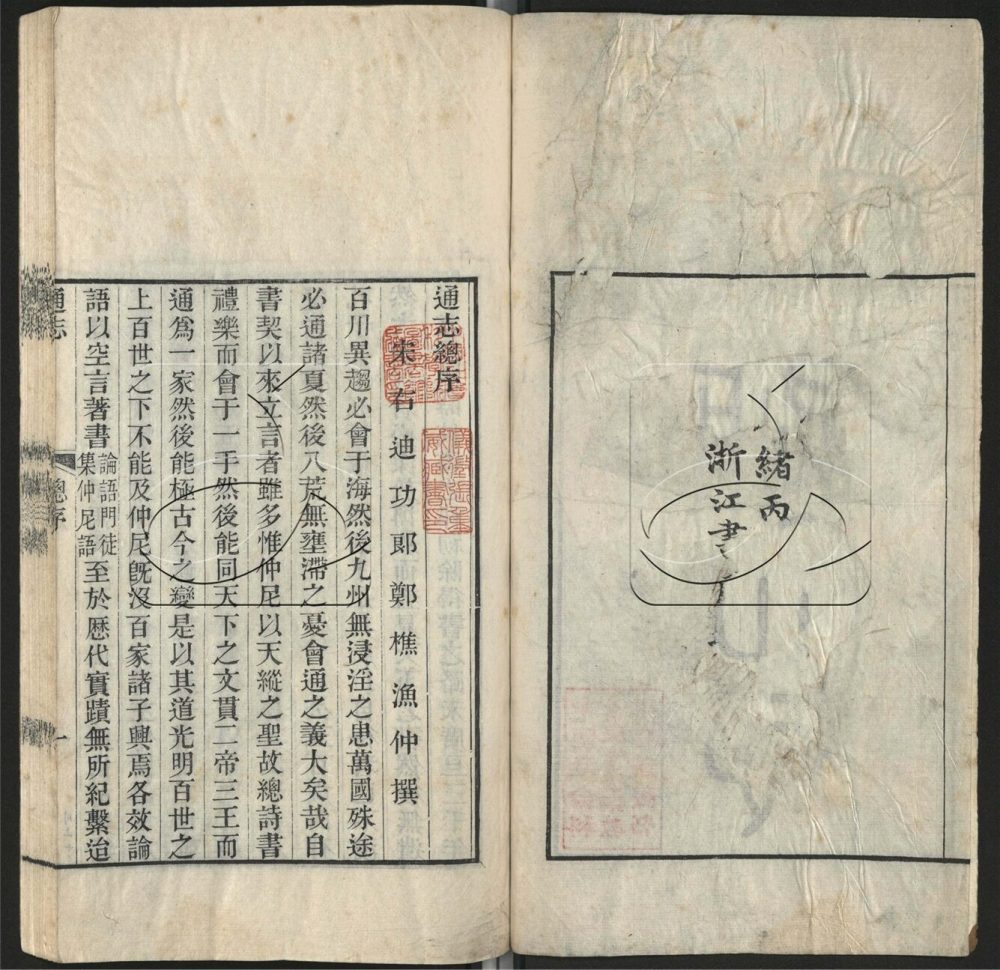 緒丙
淅江書
通志總序
宋右迪功郎鄭樵漁仲撰
百川異趨必會于海然後九州無浸淫之患萬國殊途
必通諸夏然後八荒無壅滯之憂會通之義大矣哉自
書契以來立言者雖多惟仲尼以天縱之聖故總詩書
禮樂而會于一手然後能同天下之文貫二帝三王而
通爲一家然後能極古今之變是以其道光明百世之
上百世之下不能及仲尼旣沒百家諸子興焉各效論
語以空言著書論語門徒集仲尼語至於歷代實蹟無所紀繫迨
通志
總序
一